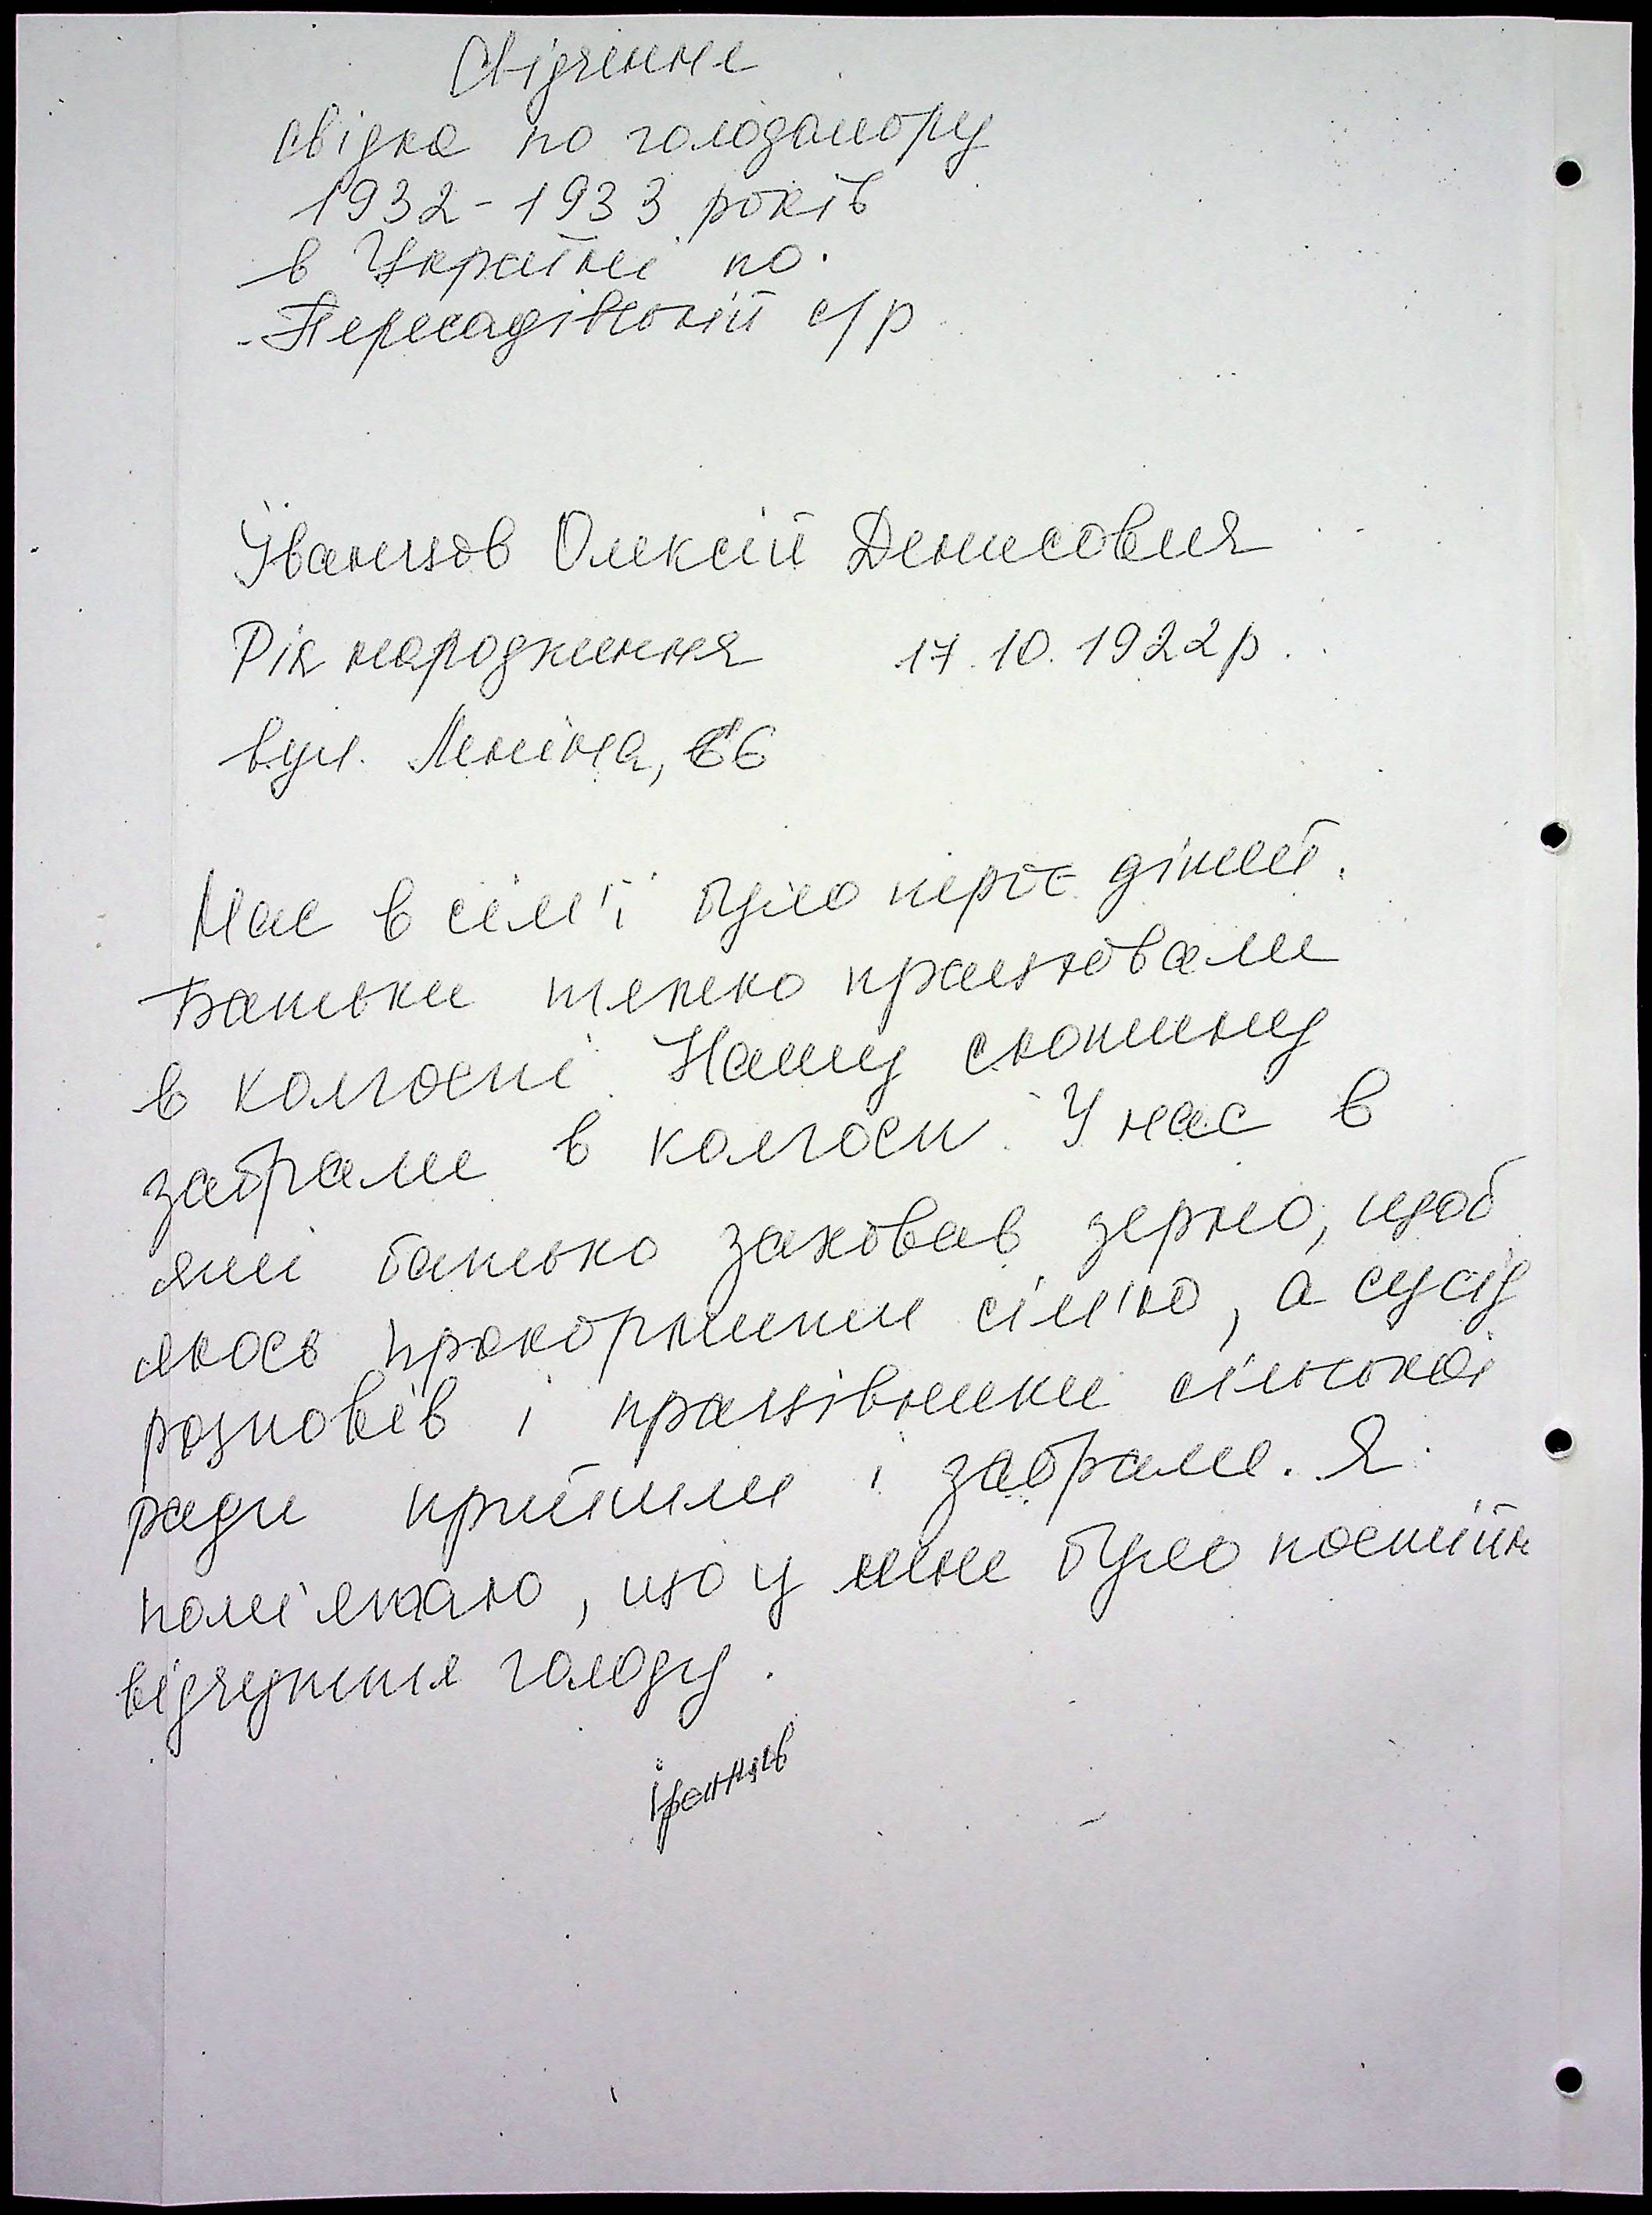 Свідчення
свідка по голодомору
1932-1933 років
в Україні по
Пересадівській с/р
Іванцов Олексій Денисович
Рік народження 17.10.1922р.
вул. Леніна, 66
Нас в сім'ї було дітей.
Батьки тяжко працювали
в колгоспі. Нашу скотину
забрали в колгосп. У нас в
ямі батько заховав зерно, щоб
якось прокормити сім'ю, а сусід
розповів і працівники сільської
ради прийшли і забрали. Я
пам'ятаю, що у мене було постійн
відчуття голоду.